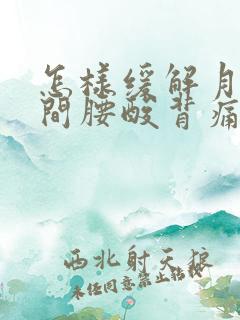 怎样缓解月
间腰酸背痛
西北射天狼
未任同意禁止转载